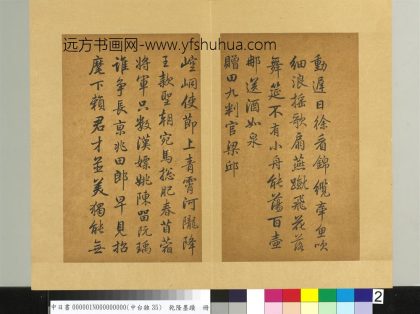 远方书画网-www.yfshuhua.com
動遲日徐看錦纜牽魚吹
細浪搖歌扇燕蹴飛花落
舞筵不有小舟能蕩百壺
那送酒如泉
贈田九判官梁邱
崆峒使節上青霄河隴降
王款聖朝宛馬總肥春苜蓿
將軍只數漢嫖姚陳留阮瑀
誰爭長京兆田郎早見招
麾下賴君才並美獨能無
乾隆墨蹟 冊
2